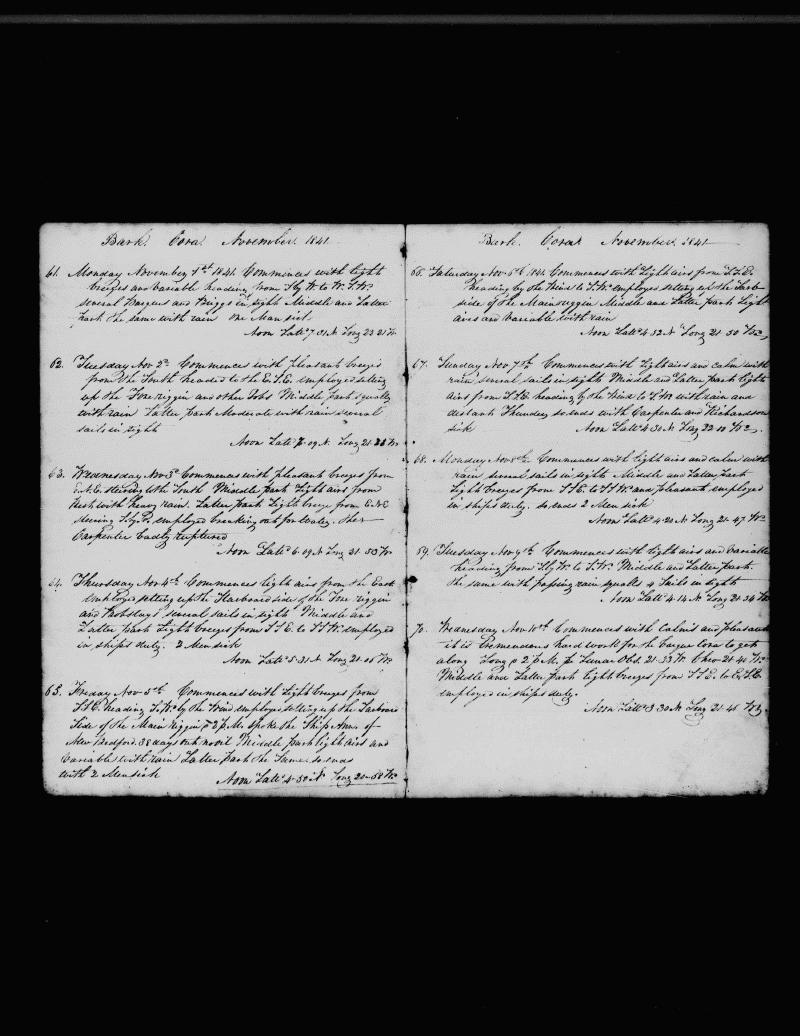 Bark. Cora. November. 1841
61. Monday November 1st 1841 Commences with light
breezes and variable heading from S by W to W.S.W.
several Barques and Briggs in sight Middle and Latter
part the same with rain one Man sick
Noon Latd 7-01 N Long 23 21 W
62. Tuesday Nov 2d Commences with pleasant breezes
from the South headed to the E.S.E. employed setting
up the Fore riggin and other Jobs Middle part squally
with rain Latter part Moderate with rain several
sails in sight
Noon Latd 7-09 N. Long 21-21 W
63. Wednesday Nov 3d Commences with pleasant breezes from
E.N.E. steering to the South Middle part Light airs from
West with heavy rain. Latter part Light breeze from E.N.E
steering S by E employed breaking out for water. the
Carpenter badly ruptured
Noon Latd 6-09 N Long 21-53 W
64. Thursday Nov 4th Commences light airs from the East
employed setting up the Starboard side of the Fore riggin
and backstays several sails in sight Middle and
Latter part Light breezes from S.S.E. to S.S.W. employed
in ships duty. 2 Men sick
Noon Latd 5-31 N Long 21-06 W
65. Friday Nov 5th Commences with Light breezes from
S.S.E. heading S.W. by the Wind employed setting up the Larboard
Side of the Main riggin @ 2 p.M. spoke the Ship Ann of
New Bedford 38 days out no oil Middle part light airs and
Variable with rain Latter part the Same. so ends
with 2 Men sick
Noon Latd 4-50 N Long 21-58 W
Bark. Cora November. 1841
66. Saturday Nov 6th 1841 Commences with Light airs from S.S.E.
heading by the Wind to S.W. employed setting up the Larb
side of the Main riggin Middle and Latter part Light
airs and Variable with rain
Noon Latd 4-32 N Long 21-50 W
67. Sunday Nov 7th Commences with Light airs and calm with
rain, several sails in sight Middle and Latter part light
airs from S.S.E. heading by the Wind to S.W with rain and
distant Thunder so ends with Carpenter and Richardson
sick
Noon Latd 4-30 N Long 22-10 W
68. Monday Nov 8th Commences with light airs and calm with
rain several sails in sight Middle and Latter Part
Light breezes from S.S.E. to S.S.W. and pleasant employed
in ships duty. so ends 2 Men sick
Noon Latd 4-20 N Long 21-47 W
69. Tuesday Nov 9th Commences with light airs and Variable
heading from S by W to S.W. Middle and Latter part
the same with passing rain squalls 4 Sails in sight
Noon Latd 4-14 N Long 21-34 W
70. Wednesday Nov 10th Commences with Calms and pleasant
it is Tremendous hard work for the barque Cora to get
along Long @ 2 p.M. pr Lunar Obs. 21-33 W. Chro 21-40 W
Middle and Latter part light breezes from S.S.E. to E.S.E.
employed in ships duty.
Noon Latd 3-30 N Long 21-41 W